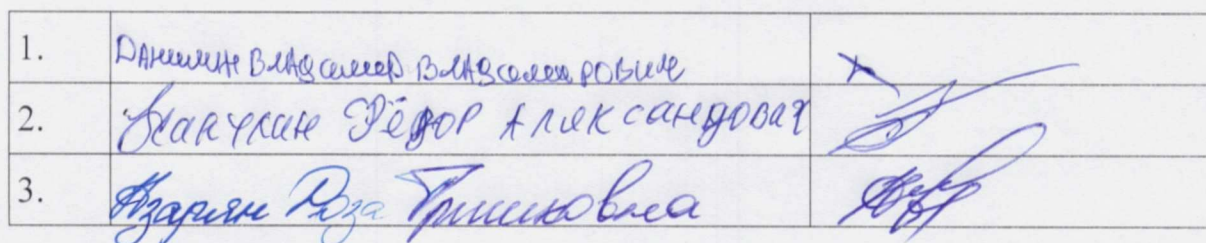 1. Данилин Владимир Владимирович
2. Фёдор Александовач
3. Азарян Роза Гришиковна